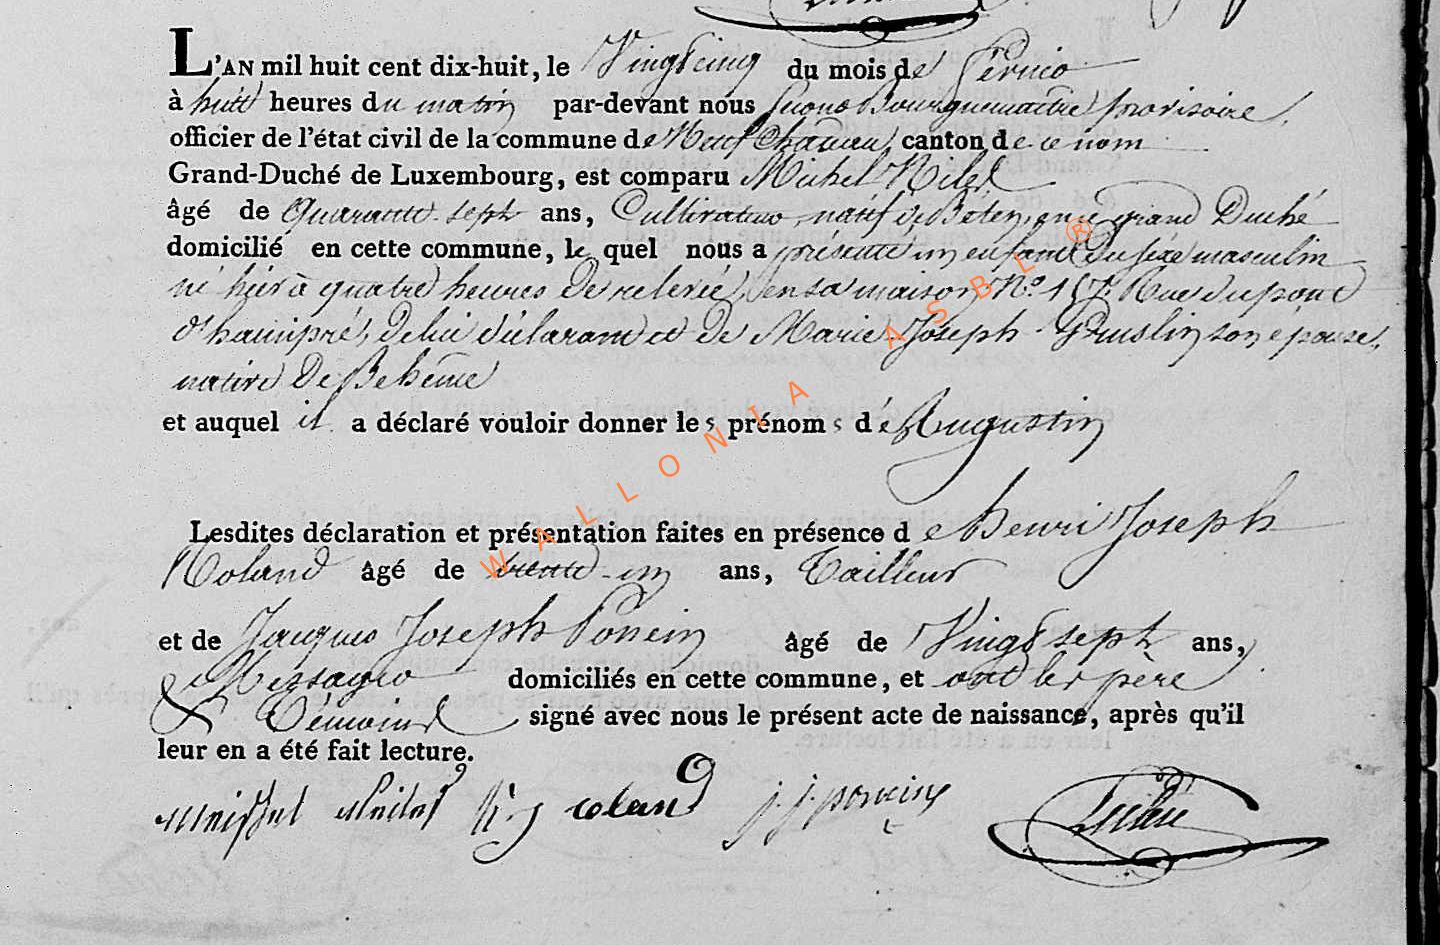 L'AN mil huit cent dix-huit, le Vingt cinq du mois de février
à huit heures du matin par-devant nous second Bourguemaitre provisoire,
officier de l'état civil de la commune de Neufchateau, canton de ce nom
Grand-Duché de Luxembourg, est comparu Michel
âgé de Quarante sept ans, Cultivateur, natif de en ce grand Duché
domicilié en cette commune, le quel nous a présenté un enfant du sexe masculin
né hier à quatre heures de relevée, en sa maison N.o Rue du pont
d'hamipré, de lui déclarant et de Marie Joseph son épouse,
native de Behême
et auquel il a déclaré vouloir donner les prénoms d'Augustin
Lesdites déclaration et présentation faites en présence de henri Joseph
Roland âgé de trente un ans, Tailleur
et de Jacques Joseph Poncin âgé de Vingt sept ans,
Messager domiciliés en cette commune, et ont les père
& Témoins signé avec nous le présent acte de naissance, après qu'il
leur en a été fait lecture.
roland j. j. poncin
WALLONIA ASBL ®